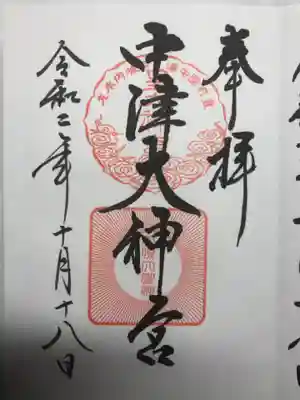 奉拝
中津大神宮
令和二年十月十八日